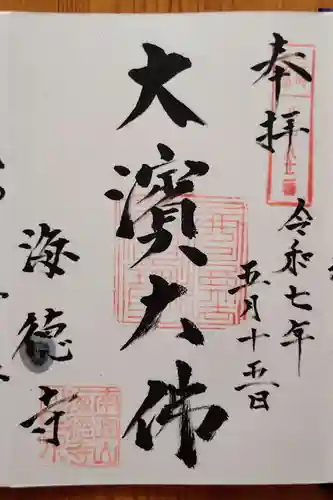 奉拝
令和七年
五月十五日
大濱大佛
海徳寺